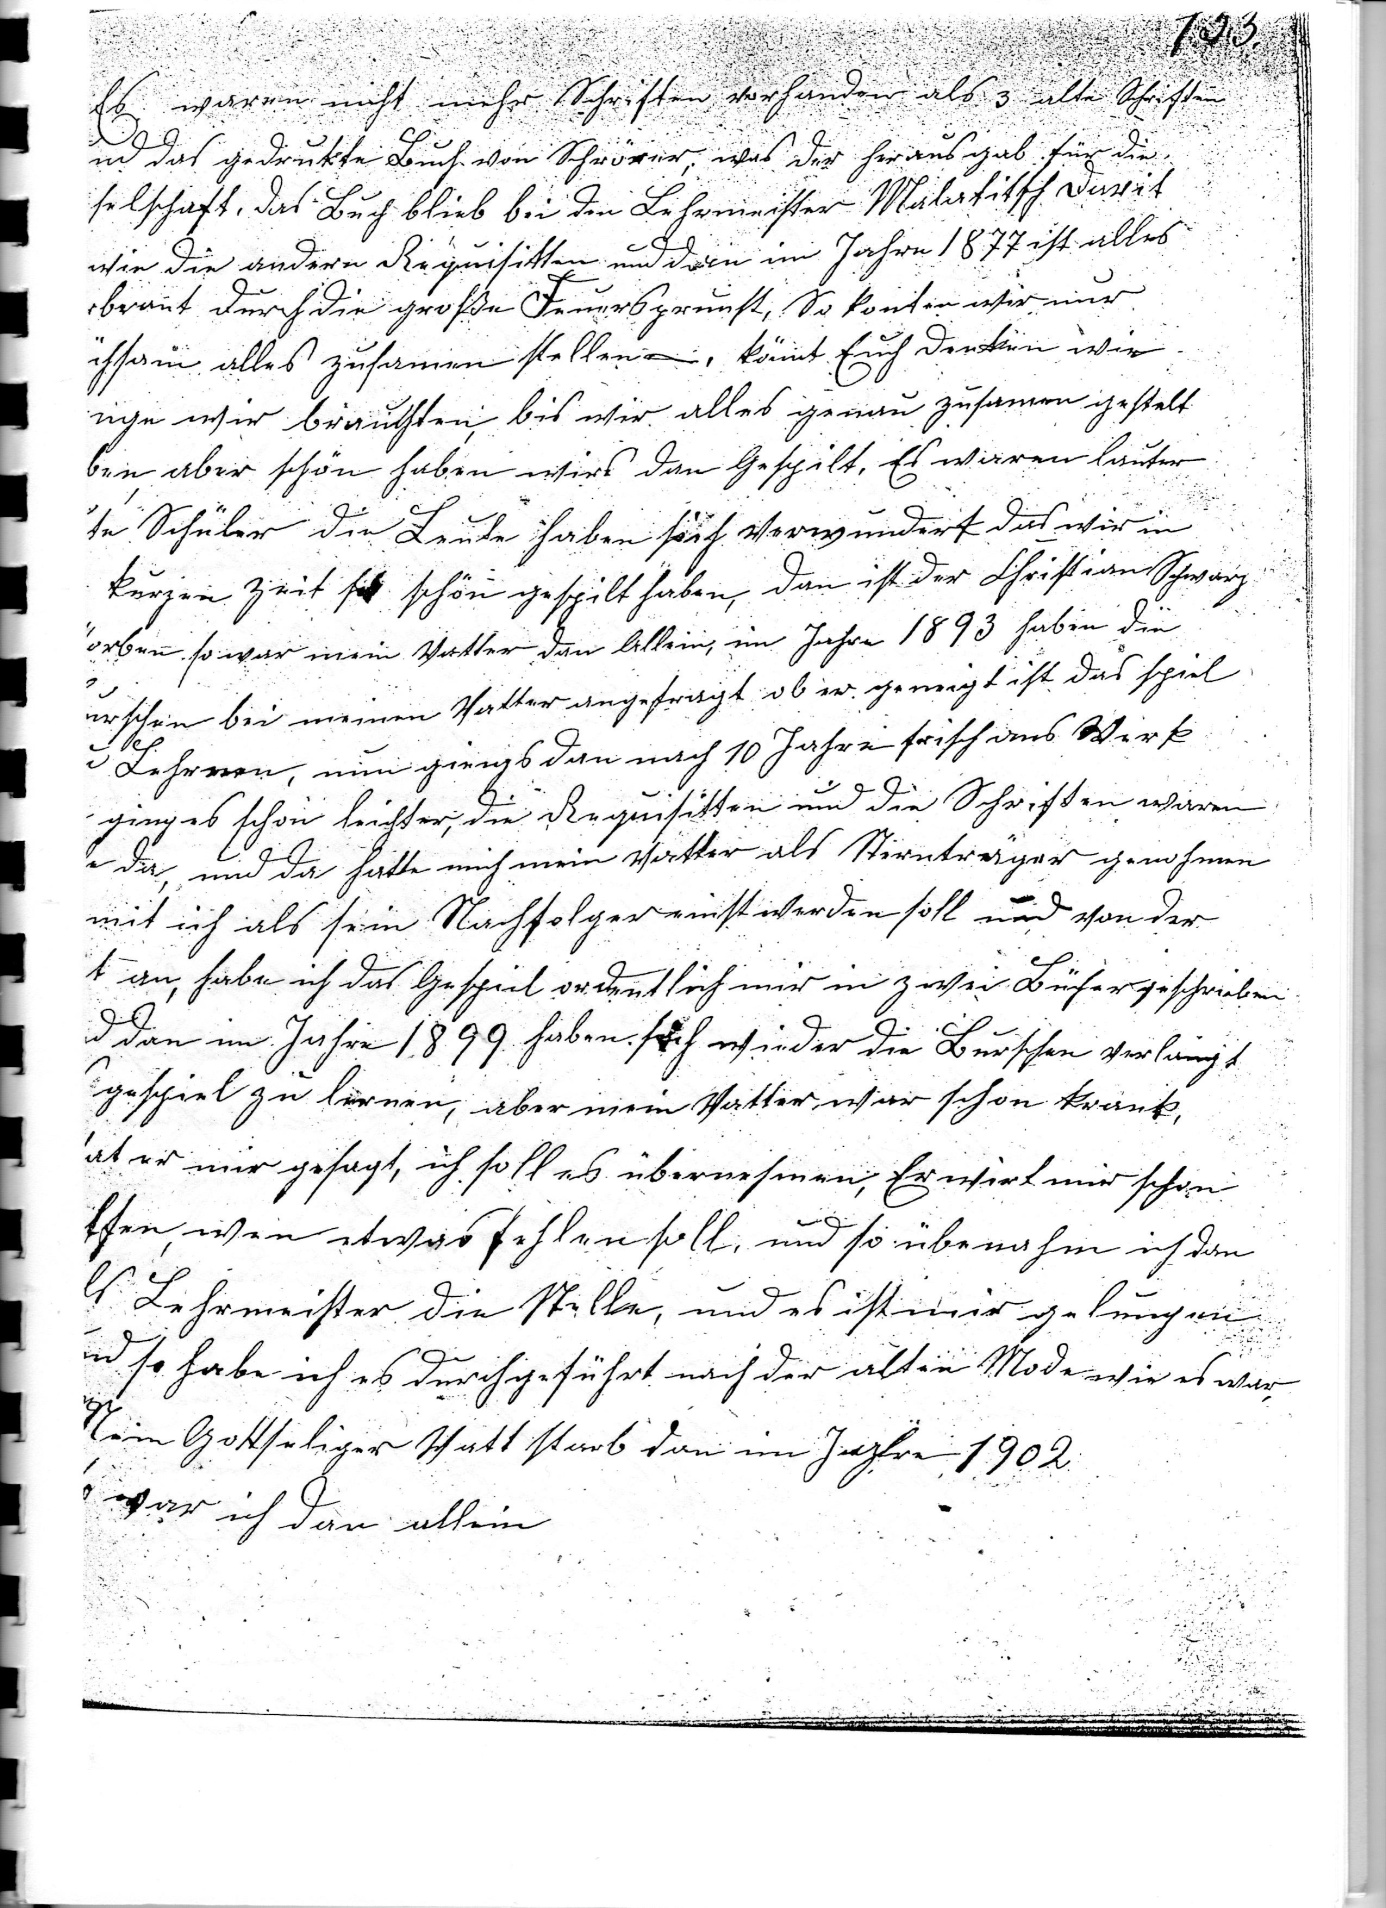 123.
Es waren nicht mehr Schriften vorhanden als 3 alte Schriften
nd das gedrukte Buch von Schröer, was der herausgab für die
selschaft, das Buch blieb bei den Lehrmeister Malatitsch Davit
wie die andern Requisitten und dan im Jahre 1877 ist alles
rbrant durch die große Feuersprunst, So konten wir nur
ühsam alles zusamen stellen, könt Euch denken wie
nge wir brauchten, bis wir alles genau zusamen gestelt
ben, aber schön haben wirs dan Gespilt, Es waren lauter
te Schüler die Leute haben sich verwundert das wir in
kurzen Zeit so schön gespilt haben, dan ist der Christian Schwarz
orben so war mein Vatter dan Allein, im Jahre 1893 haben die
urschen bei meinen Vatter angefragt ob er geneigt ist das spiel
u Lehrnen, nun giengs dan nach 10 Jahre frisch ans Werk
ging es schon leichter, die Requisitten und die Schriften waren
e da, und da hatte mich mein Vatter als Sternträger genohmen
mit ich als sein Nachfolger einst werden soll und von der
t an, habe ich das Gespiel ordentlich mir in zwei Bücher geschrieben
d dan im Jahre 1899 haben sich wieder die Burschen verlangt
gespiel zu lernen, aber mein Vatter war schon krank,
at er mir gesagt, ich soll es übernehmen, Er wirt mir schon
lfen, wen etwas fehlen soll, und so übenahm ich dan
ls Lehrmeister die Stelle, und es ist mir gelungen
nd so habe ich es durchgeführt nach der alten Mode wie es war,
Mein Gottseliger Vatt starb dan im Jahre 1902
o war ich dan allein